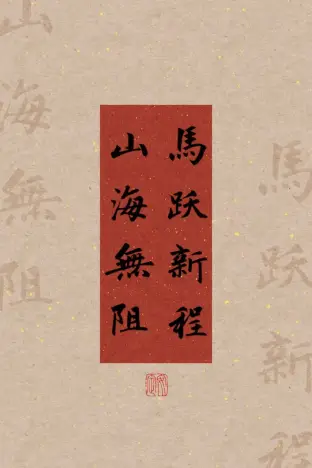 馬跃新程
山海無阻
馬跃新程
山海無阻